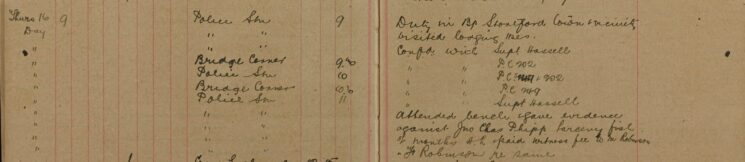 Thurs 16 9 Police Stn 9 Duty in Bp Stortford Town & vicinity
Day " " visited lodging hses.
" " " Confd. with Supt Hassell
" Bridge Corner 9.40 " P.C 202
" Police Stn 10 " P.C 202
" Bridge Corner 10.40 " P.C
" Police Stn 11 " Supt Hassell
" " Attended bench & gave evidence
" " against Jno Chas Phipp larceny
" " months H.L. & paid witness fee to Robinson
" Robinson re same